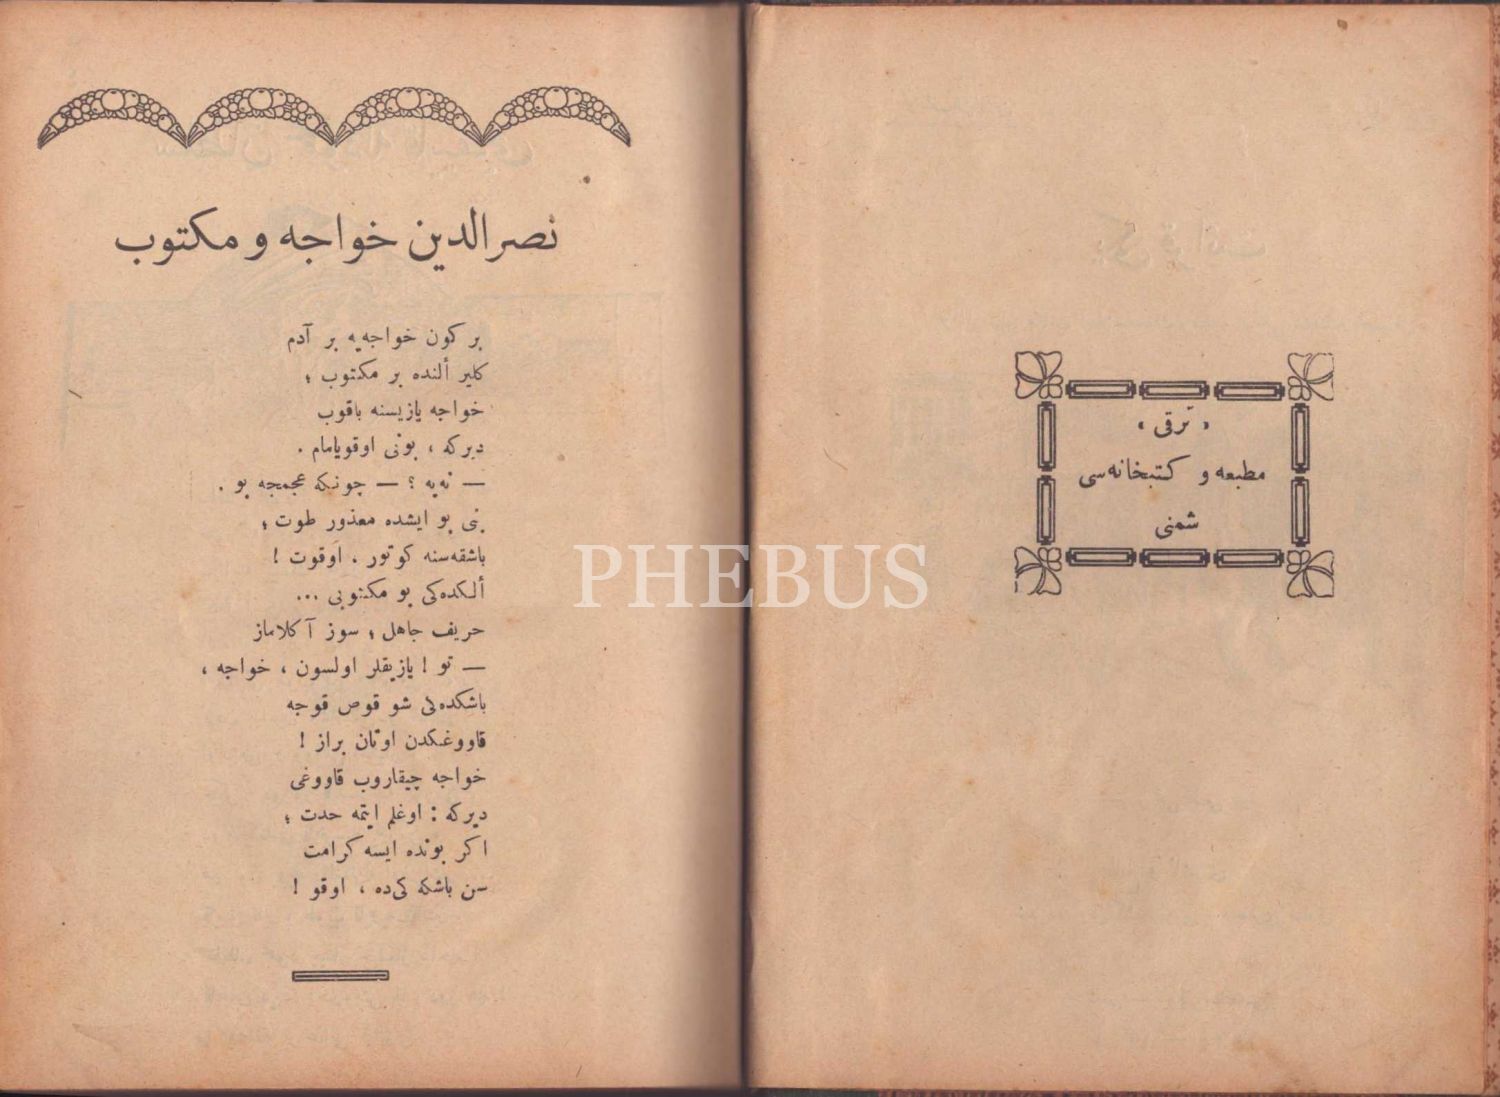 نصرالدین خواجه و مکتوب
بر کون خواجه‌یه بر آدم
کلیر ألنده بر مکتوب ؛
خواجه یازیسنه باقوب
دیرکه ، بونی اوقویامام .
— نه‌یه ؟ — چونکه عجمجه بو .
بنی بو ایشده معذور طوت ؛
باشقه‌سنه کوتور . اوقوت !
ألکده‌کی بو مکتوبی ...
حریف جاهل ؛ سوز آکلاماز
— تو ! یازیقلر اولسون ، خواجه ،
باشکده‌کی شو قوص قوجه
قاووغکدن اوتان براز !
خواجه چیقاروب قاووغی
دیرکه : اوغلم ایتمه حدت ؛
اکر بونده ایسه کرامت
سن باشکه کی‌ده ، اوقو !
« ترقی »
مطبعه و کتبخانه‌سی
شمنی
PHEBUS